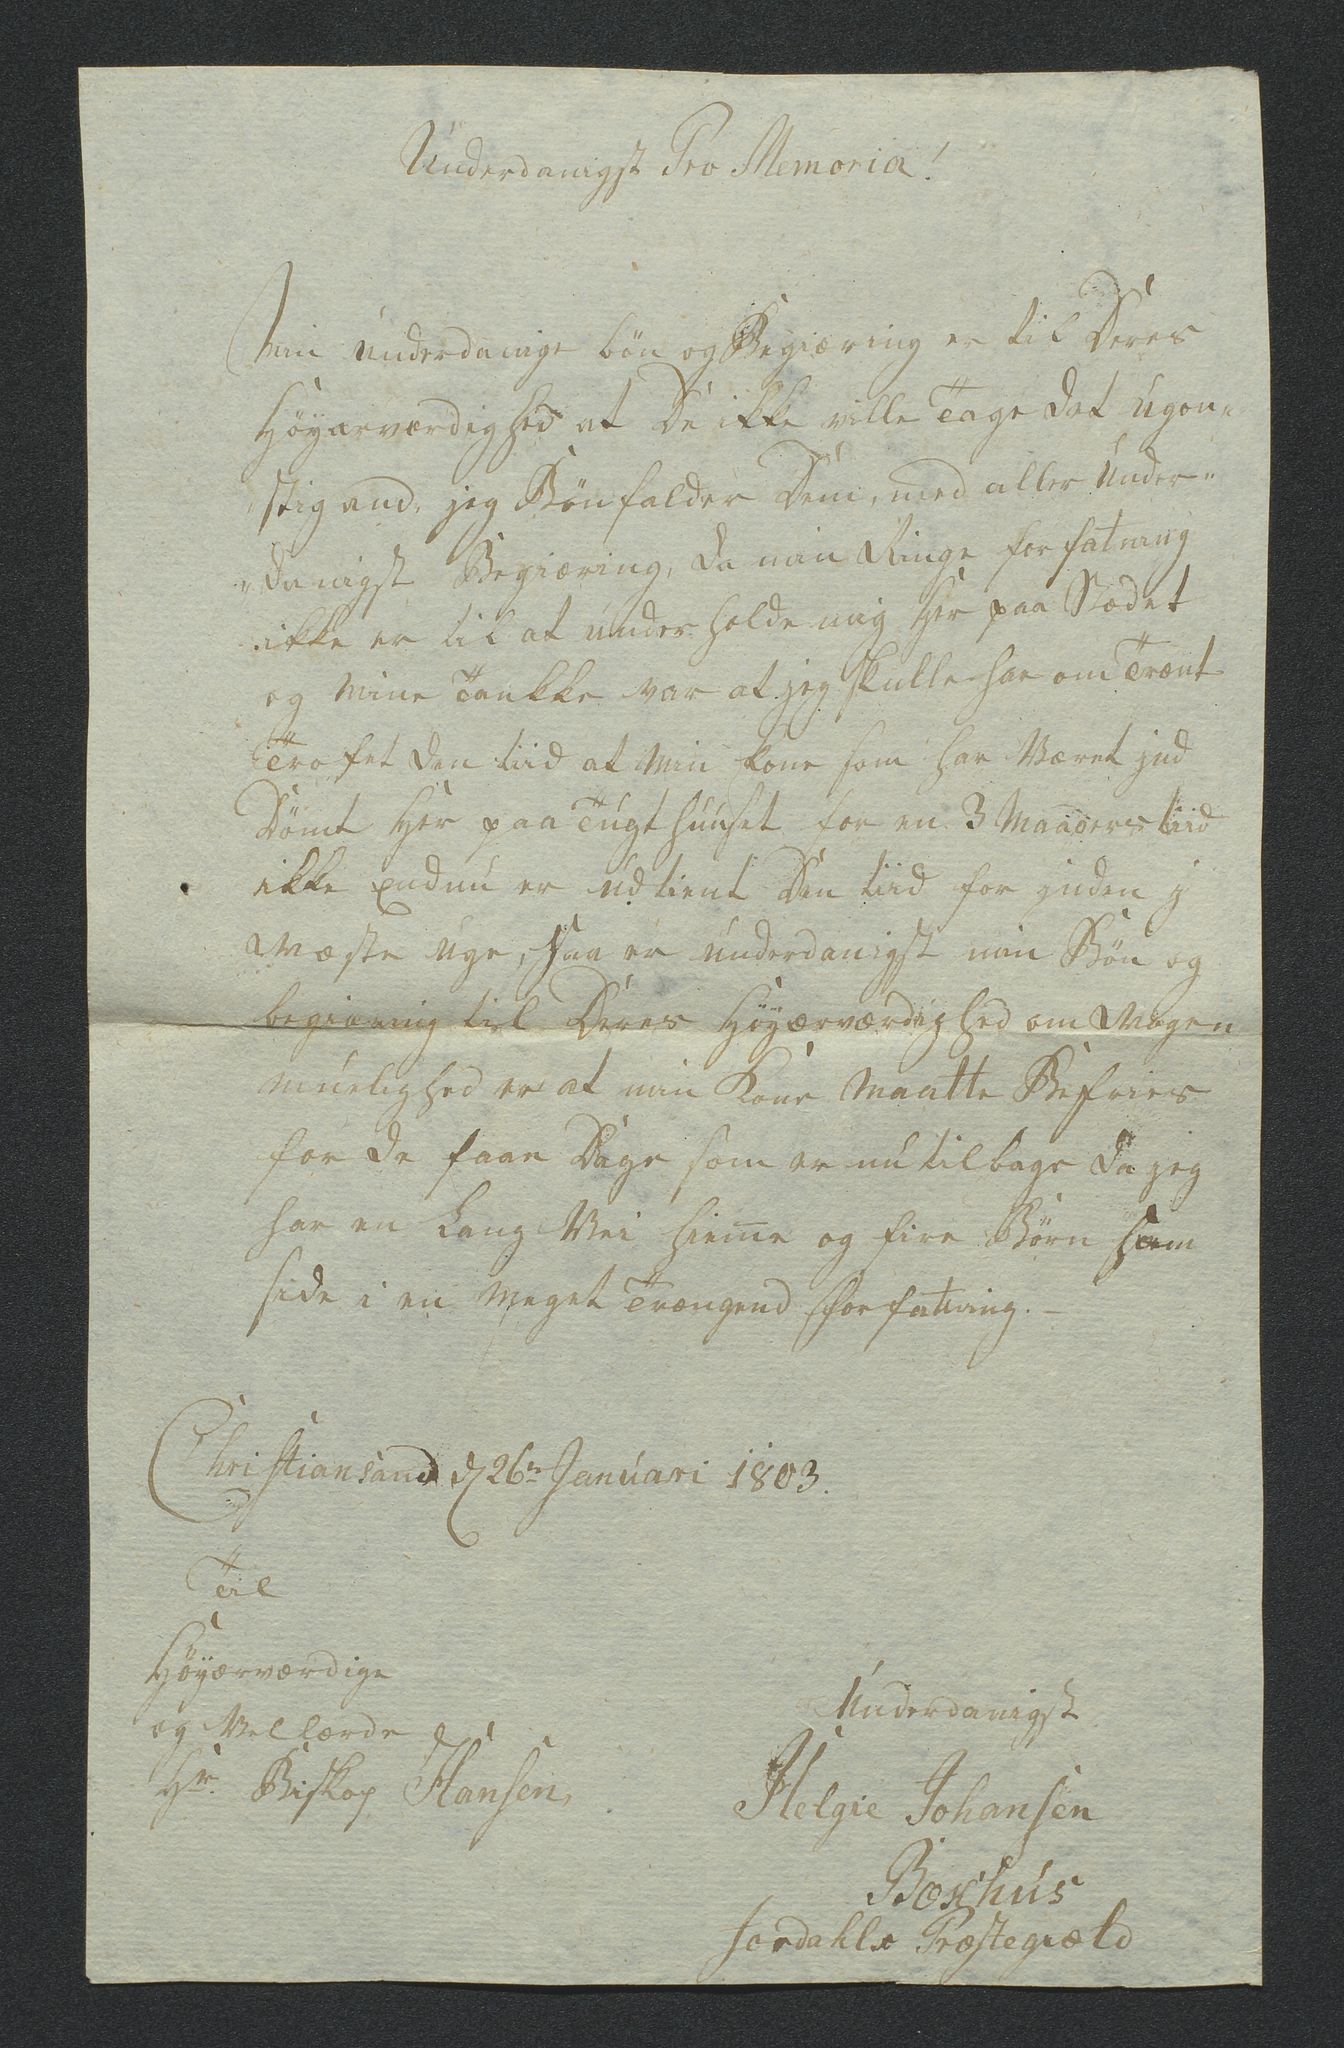 Underdanigst Pro Memoria!
Min underdanige bön og Begiæring er til Deres
Höyærværdighed at De ikke ville Tage det ugon„
„stig and, jeg Bönfalder Dem, med aller Under„
„danigst Begiæring, da min Ringe forfatning
ikke er til at underholde mig her paa Stædet
og Mine Tankke var at jeg skulle har omTrent
Trofet den tiid at Min kone som har Været ind
Dömt her paa Tugthuuset for en 3 Maaders tiid
ikke endnu er udtient Den tiid for inden j
Næste uge, saa er underdanigst min Bön og
begiæring til Deres Höyærværdighed om Nogen
Muelighed er at min Kone Maatte Befries
for de faae Dage som er nu tilbage da jeg
har en Lang Vei hiem̄e og fire Börn som
side i en Meget Trængend forfatning. –
Christiansand d 26n Januari 1803.
Til
Höyærværdige
og Vellærde
Hr. Biskop Hansen,
Underdanigst
Helgie Johansen
Boxhus
Jordahls Præstegiæld